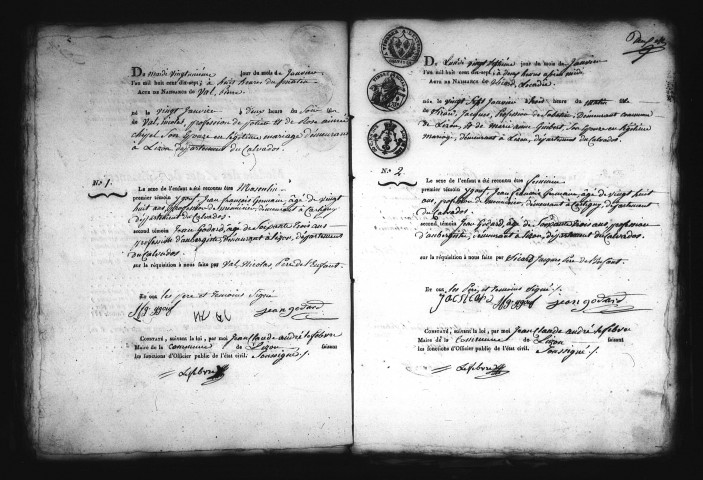 Du mardi vingtunieme jour du mois de Janvier
l'an mil huit cent dix-sept, à huit heures du matin
ACTE DE NAISSANCE de Val,
né le vingt Janvier à deux heures du Soir de
de Val, nicolas, profession de et de Rose aimée
Son Epouze en légitime mariage, demeurant
à Lizon département du Calvados.
N.º 1.
Le sexe de l'enfant a été reconnu être Masculin.
premier témoin ygouf, Jean françois Germain, âgé de vingt
huit ans, profession de menuisier, demeurant à Cartigny,
département du Calvados.
second témoin Jean Godard, âgé de Soixante trois ans
profession d'aubergiste, demeurant à Lizon, département
du Calvados.
sur la réquisition à nous faite par Val, Nicolas, Père de l'Enfant.
Et ont les père et temoins Signé.
ygouf jean godard
CONSTATÉ, suivant la loi, par moi Jean Claude andré lefebvre
Maire de la Commune de Lizon faisant
les fonctions d'Officier public de l'état civil. Soussigné.
Lefebvre
Du Lundi vingt septieme jour du mois de Janvier
l'an mil huit cent dix-sept; à deux heures après midi
ACTE DE NAISSANCE de Sicard,
née le vingt Sept Janvier à trois heures du matin
de Sicard, Jacques, Profession de demeurant commune
de Lizon, et de marie anne Son Epouze en légitime
mariage, demeurant à Lizon, département du Calvados.
N.º 2.
Le sexe de l'enfant a été reconnu être Feminin.
premier témoin ygouf, Jean francois Germain, âgé de vingt huit
ans, profession de menuisier, demeurant à Cartigny, département
du Calvados.
second témoin Jean Godard, âgé de Soixante trois ans, profession
d'aubergiste, demeurant à Lizon, département du Calvados.
sur la réquisition à nous faite par Sicard Jacques Père de l'Enfant.
Et ont les Père, et temoins Signé.
J sicard ygouf jean godard
CONSTATÉ, suivant la loi, par moi Jean Claude andré lefebvre
Maire de la Commune de Lizon faisant
les fonctions d'Officier public de l'état civil. Soussigné.
Lefebvre